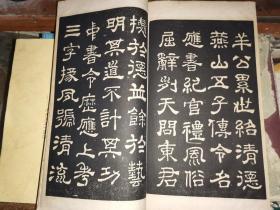 羊公累世絡清德
燕山五子傳令名
應書紀官禮風俗
屈辭判天問東君
摠於德並餘於藝
明其道不計其功
中書令歷應上考
三字掾夙號清流